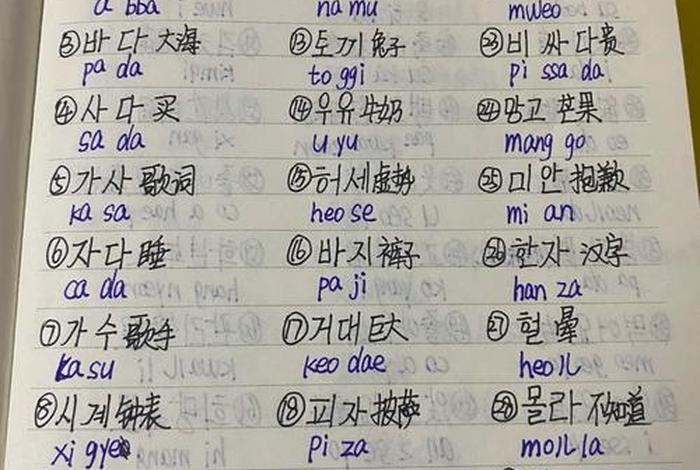 a bba na mu mweo
③바 다 大海 ⑬토끼 兔子 ㉓비 싸 다 贵
pa da to ggi pi ssa da
④사 다 买 ⑭우유 牛奶 ㉔망고 芒果
sa da u yu mang go
⑤가사 歌词 ⑮허세 虚势 ㉕미 안 抱歉
ka sa heo se mi an
⑥자다 睡 ⑯바지 裤子 ㉖한자 汉字
ca da pa ji han za
⑦가 수 歌手 ⑰거대 巨大 ㉗헐 晕
ka su keo dae heol
⑧시계 钟表 ⑱피자 披萨 ㉘몰라 不知道
xi gye pi za mol la